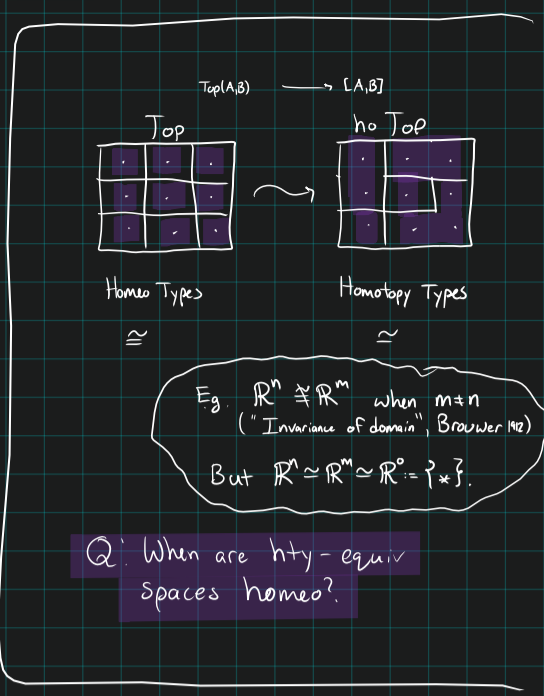 Top(A,B) ⟶ [A,B]
Top
ho Top
Homeo Types
Homotopy Types
≅
≃
E.g. ℝⁿ ≇ ℝᵐ when m≠n
("Invariance of domain", Brouwer 1912)
But ℝⁿ ≃ ℝᵐ ≃ ℝ⁰ := {*}.
Q: When are hty-equiv
spaces homeo?